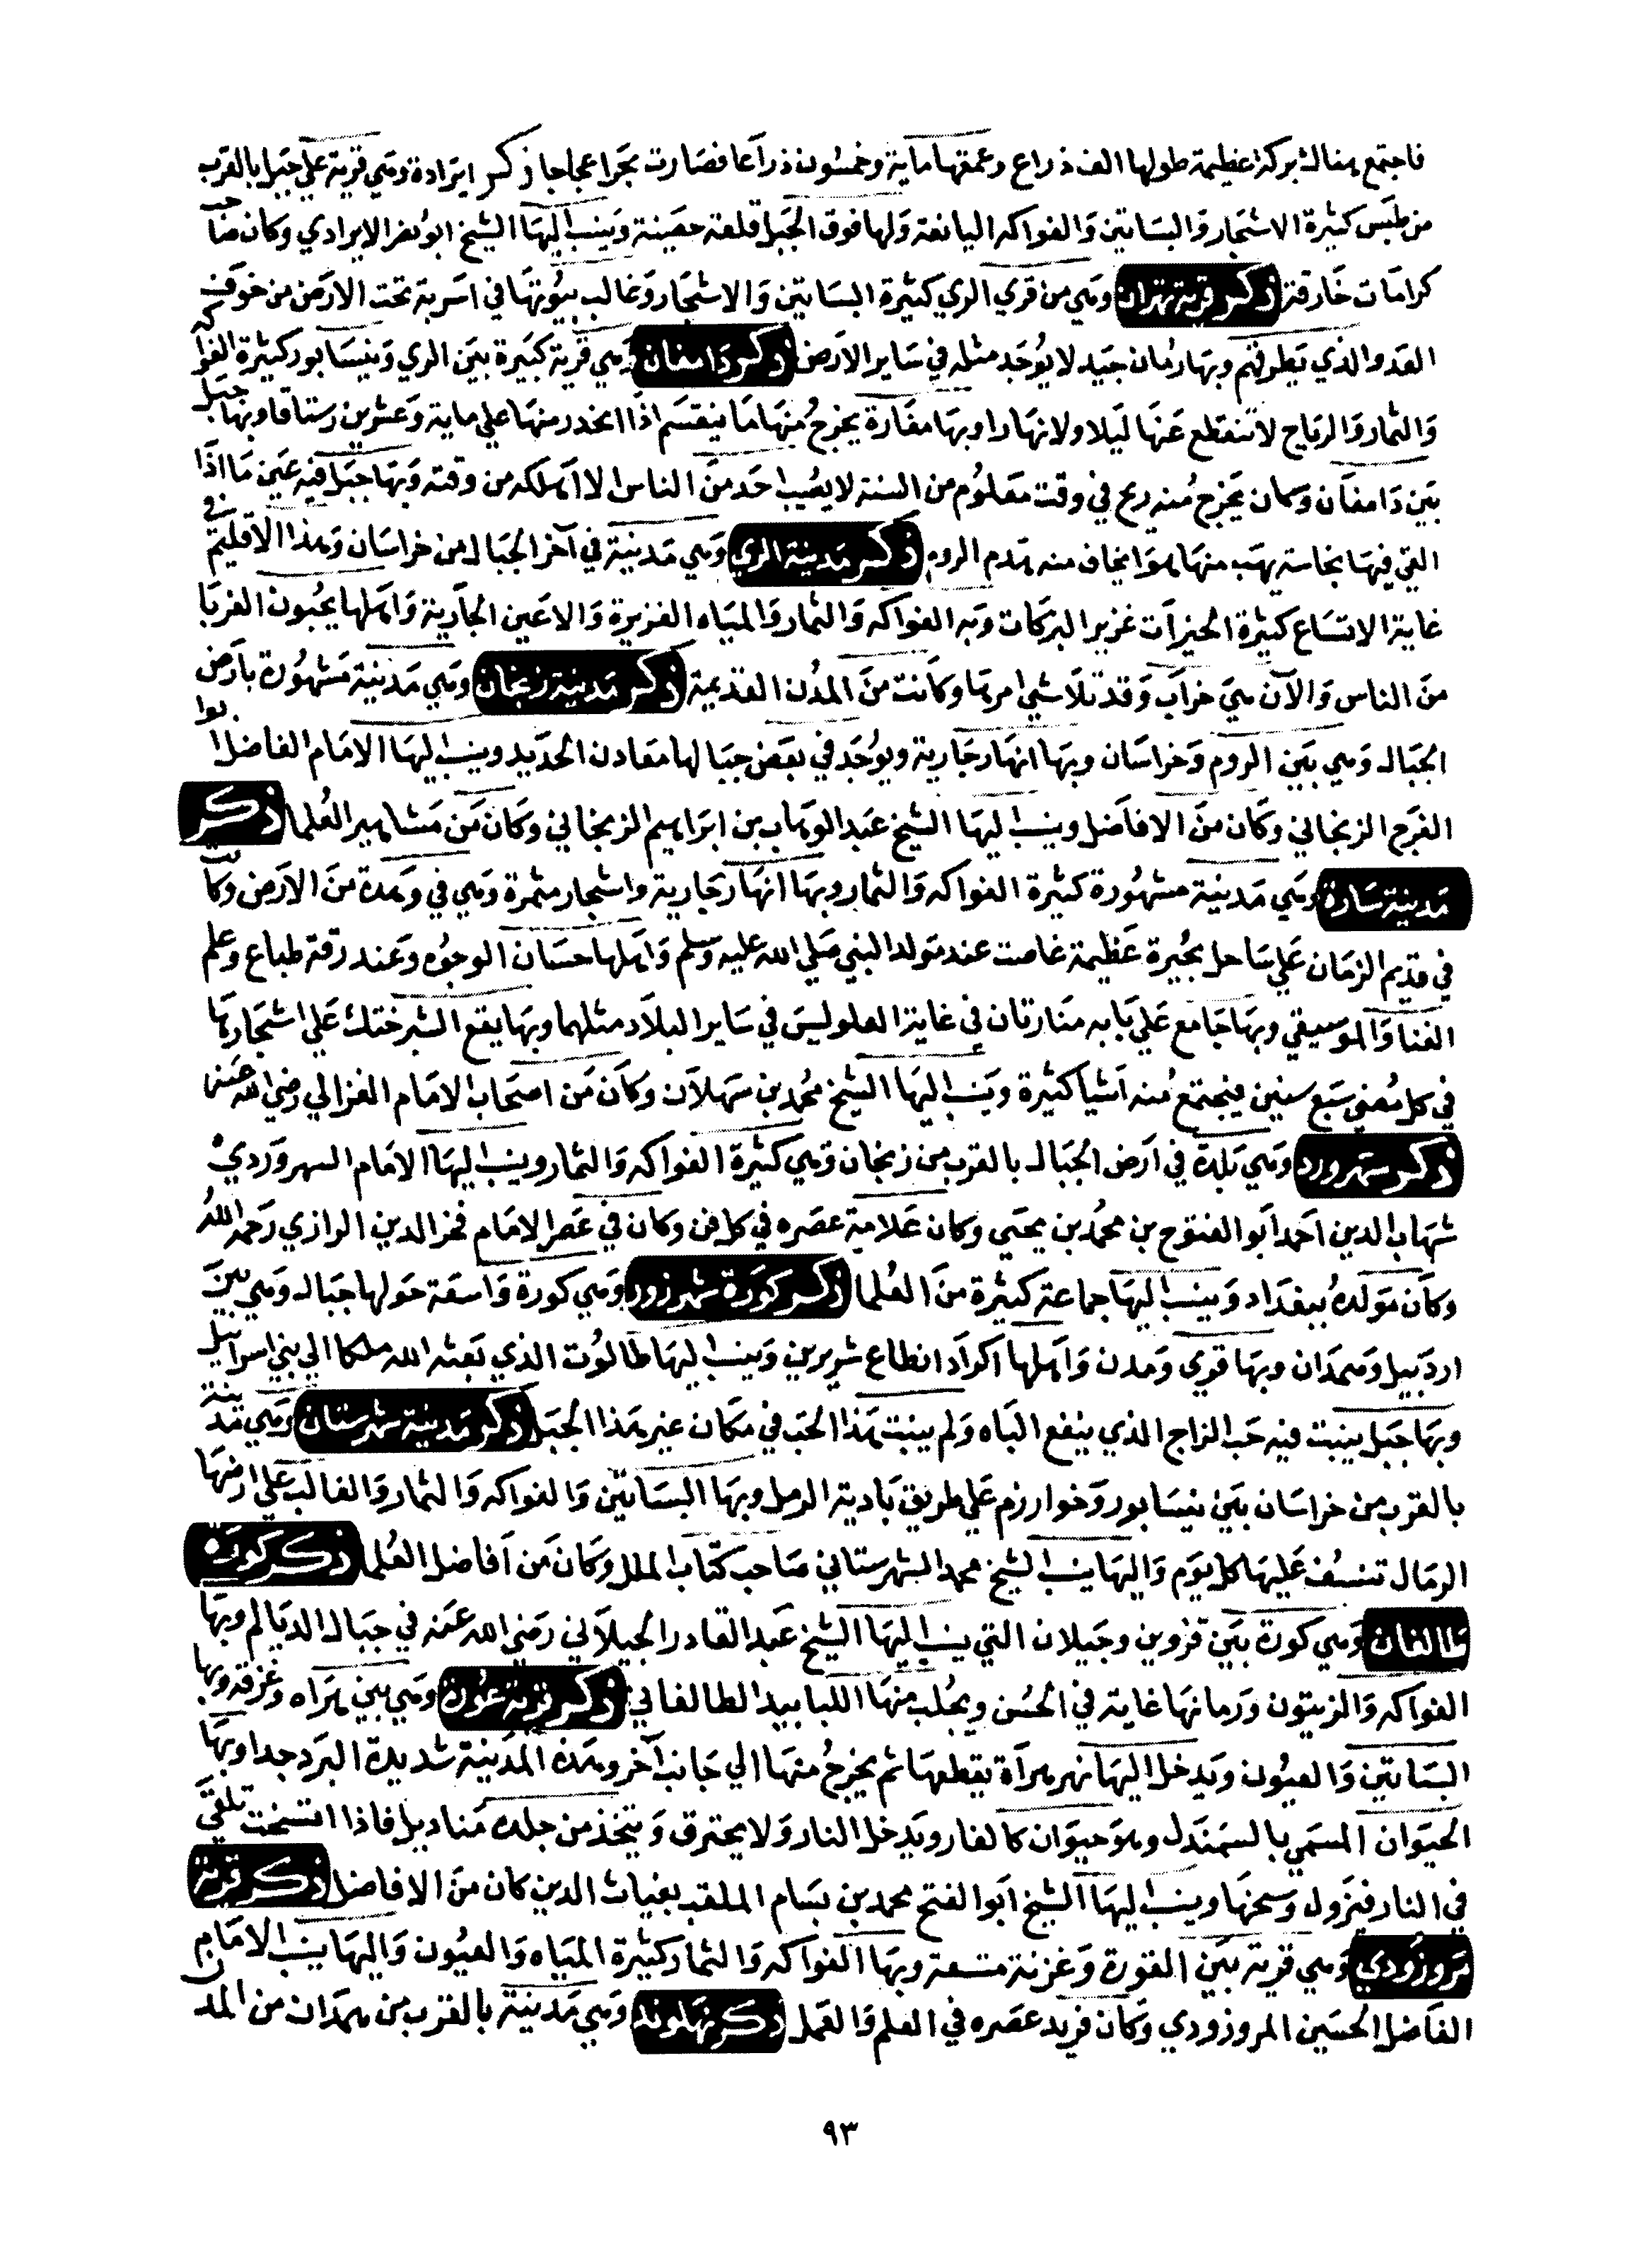 فاجتمع هنالك بركة عظيمة طولها الف ذراع وعمقها ماية وخمسون ذراعا فصارت بحرا عجاجا ذكر ايرادة وهي قرية علي جبل بالقرب
من طبس كثيرة الاشجار والبساتين والفواكه اليانعة ولها فوق الجبل قلعة حصينة وينسب اليها الشيخ ابو نصر الايرادي وكان صاحب
كرامات خارقة ذكر قرية تهران وهي من قري الري كثيرة البساتين والاشجار وغالب بيوتها في اسربة تحت الارض من خوف
العدو الذي يطرقهم وبها رمان جيد لا يوجد مثله في ساير الارض ذكر دامغان وهي قرية كبيرة بين الري ونيسابور كثيرة الفواكه
والثمار والرياح لا تنقطع عنها ليلا ولا نهارا وبها مغارة يخرج منها ما ينقسم اذا انحدر منها علي ماية وعشرين رستاقا وبها جبل
بين دامغان وكان يخرج منه ريح في وقت معلوم من السنة لا يصيب احد من الناس الا اهلكه من وقته وبها جبل فيه عين ما اذا
القي فيها نجاسة يهب منها هوا يخاف منه هدم الروم ذكر مدينة الري وهي مدينة في آخر الجبال من خراسان وهذا الاقليم في
غاية الاتساع كثيرة الخيرات غزير البركات وبه الفواكه والثمار والمياه الغزيرة والاعين الجارية واهلها يحبون الغربا
من الناس والآن هي خراب وقد تلاشي امرها وكانت من المدن القديمة ذكر مدينة زنجان وهي مدينة مشهورة بارض
الجبال وهي بين الروم وخراسان وبها انهار جارية ويوجد في بعض جبالها معادن الحديد وينسب اليها الامام الفاضل ابوا
الفرج الزنجاني وكان من الافاضل وينسب اليها الشيخ عبد الوهاب بن ابراهيم الزنجاني وكان من مشاهير العلما ذكر
مدينة ساوة وهي مدينة مشهورة كثيرة الفواكه والثمار وبها انهار جارية واشجار مثمرة وهي في وهدة من الارض وكانت
في قديم الزمان علي ساحل بحيرة عظيمة غاصت عند مولد النبي صلي الله عليه وسلم واهلها حسان الوجوه وعند رقة طباع وعلم
الغنا والموسيقي وبها جامع علي بابه منارتان في غاية العلو ليس في ساير البلاد مثلهما وبها يقع الشيرختك علي اشجارها
في كل مضي سبع سنين فيجتمع منه اشيا كثيرة وينسب اليها الشيخ محمد بن سهلان وكان من اصحاب الامام الغزالي رضي الله عنه
ذكر سهرورد وهي بلدة في ارض الجبال بالقرب من زنجان وهي كثيرة الفواكه والثمار وينسب اليها الامام السهروردي
شهاب الدين احمد ابو الفتوح بن محمد بن يحيي وكان علامة عصره في كل فن وكان في عصر الامام فخر الدين الرازي رحمه الله
وكان مولده ببغداد وينسب اليها جماعة كثيرة من العلما ذكر كورة شهرزور وهي كورة واسعة حولها جبال وهي بين
اردبيل وهمدان وبها قوي ومدن واهلها اكراد انطاع شريرين وينسب اليها طالوت الذي بعثه الله ملكا الي بني اسراييل
وبها جبل ينبت فيه حب الزاج الذي ينفع الباه ولم ينبت هذا الحب في مكان غير هذا الجبل ذكر مدينة شهرستان وهي مدينة
بالقرب من خراسان بين نيسابور وخوارزم علي طريق بادية الرمل وبها البساتين والفواكه والثمار والغالب علي ارضها
الرمال تنسف عليها كل يوم واليها ينسب الشيخ محمد الشهرستاني صاحب كتاب الملل وكان من افاضل العلما ذكر كورة
طالقان وهي كورة بين قزوين وجيلان التي ينسب اليها الشيخ عبد القادر الجيلاني رضي الله عنه في جبال الديالم وبها
الفواكه والزيتون ورمانها غاية في الحسن ويجلب منها اللبابيد الطالقاني ذكر قرية غور وهي بين هراه وغزقه وبها
البساتين والعيون ويدخل اليها نهر هرآة يقطعها ثم يخرج منها الي جانب آخر وهذه المدينة شديدة البرد جدا وبها
الحيوان المسمي بالسمندل وهو حيوان كالفار ويدخل النار ولا يحترق ويتخذ من جلده مناديل فاذا اتسخت تلقي
في النار فيزول وسخها وينسب اليها الشيخ ابو الفتح محمد بن بسام الملقب بغياث الدين كان من الافاضل ذكر قرية
مروزودي وهي قرية بين الغورة وغزنة متسعة وبها الفواكه والثمار كثيرة المياه والعيون واليها ينسب الامام
الفاضل الحسين المروزودي وكان فريد عصره في العلم والعمل ذكر نهاوند وهي مدينة بالقرب من همدان من المدن
٩٣